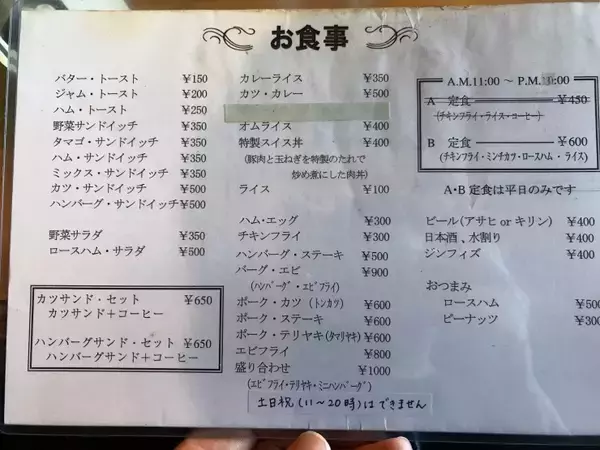 お食事
バター・トースト ¥150
ジャム・トースト ¥200
ハム・トースト ¥250
野菜サンドイッチ ¥350
タマゴ・サンドイッチ ¥350
ハム・サンドイッチ ¥350
ミックス・サンドイッチ ¥350
カツ・サンドイッチ ¥500
ハンバーグ・サンドイッチ ¥500
野菜サラダ ¥350
ロースハム・サラダ ¥500
カツサンド・セット ¥650
カツサンド＋コーヒー
ハンバーグサンド・セット ¥650
ハンバーグサンド＋コーヒー
カレーライス ¥350
カツ・カレー ¥500
オムライス ¥400
特製スイス丼 ¥400
(豚肉と玉ねぎを特製のたれで
炒め煮にした肉丼)
ライス ¥100
ハム・エッグ ¥300
チキンフライ ¥300
ハンバーグ・ステーキ ¥500
バーグ・エビ ¥900
(ハンバーグ・エビフライ)
ポーク・カツ (トンカツ) ¥600
ポーク・ステーキ ¥600
ポーク・テリヤキ(タマリヤキ) ¥600
エビフライ ¥800
盛り合わせ ¥1000
(エビフライ・テリヤキ・ミニハンバーグ)
土日祝(11〜20時)はできません
A.M.11:00 〜 P.M. :00
A 定食 ¥450
(チキンフライ・ライス・コーヒー)
B 定食 ¥600
(チキンフライ・ミンチカツ・ロースハム・ライス)
A・B 定食は平日のみです
ビール(アサヒ or キリン) ¥400
日本酒、水割り ¥400
ジンフィズ ¥400
おつまみ
ロースハム ¥500
ピーナッツ ¥300